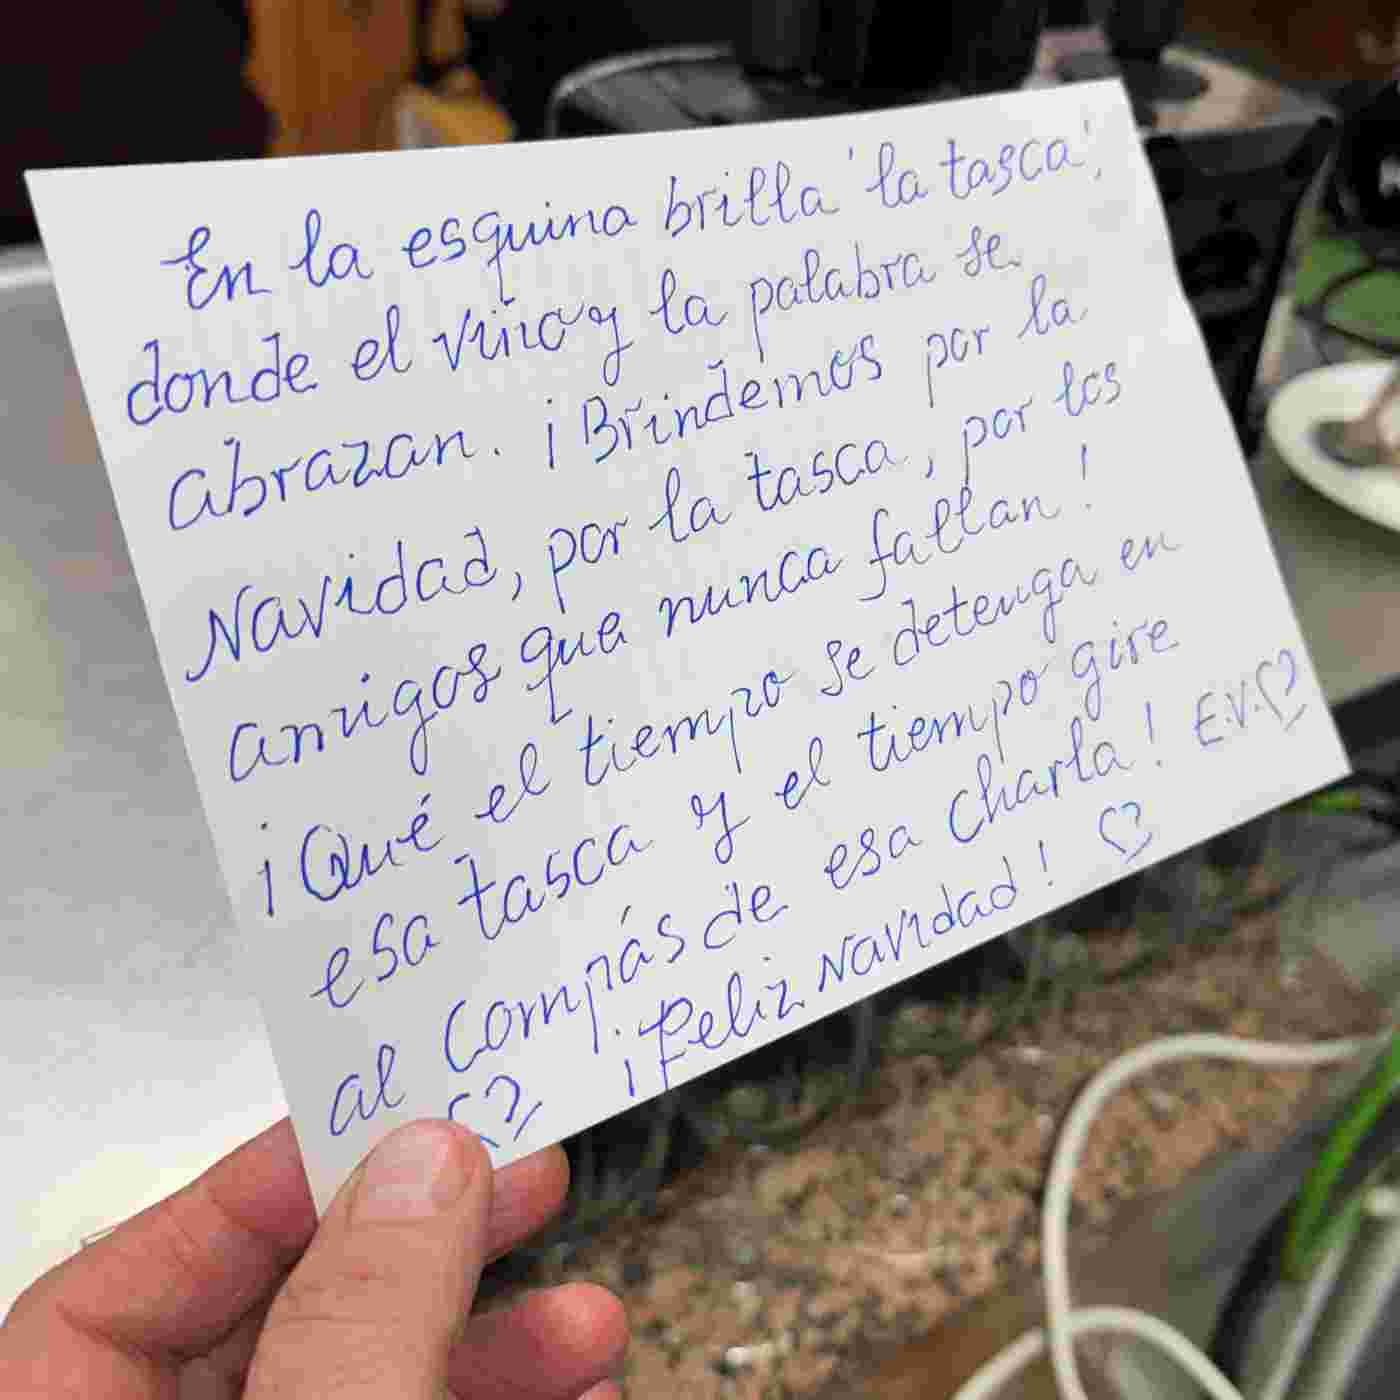 En la esquina brilla 'la tasca',
donde el vino y la palabra se
abrazan. ¡Brindemos por la
Navidad, por la tasca, por los
amigos que nunca fallan!
¡Qué el tiempo se detenga en
esa tasca y el tiempo gire
al compás de esa charla! E.V.♡
♡ ¡Feliz Navidad! ♡